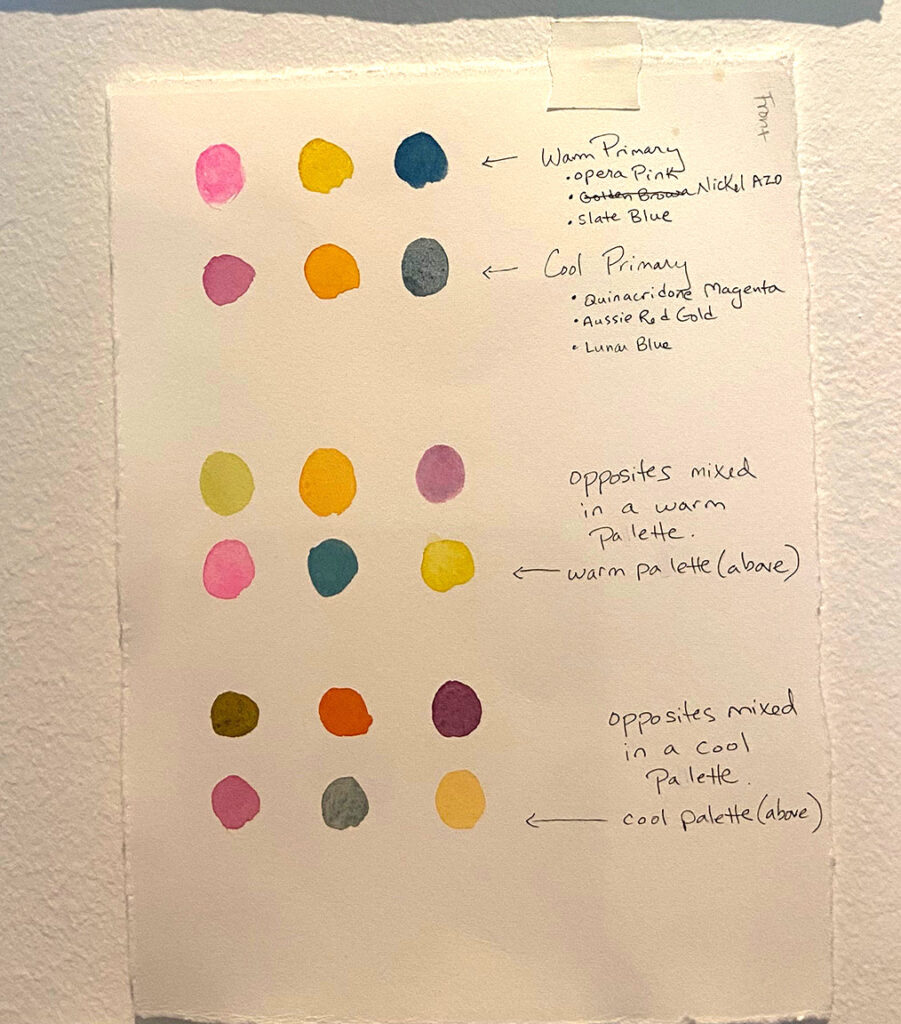 Front
Warm Primary
• opera Pink
• Golden Brown Nickel AZO
• Slate Blue
← Cool Primary
• Quinacridone Magenta
• Aussie Red Gold
• Lunar Blue
opposites mixed
in a warm
Palette.
← warm palette (above)
opposites mixed
in a cool
Palette.
← cool palette (above)